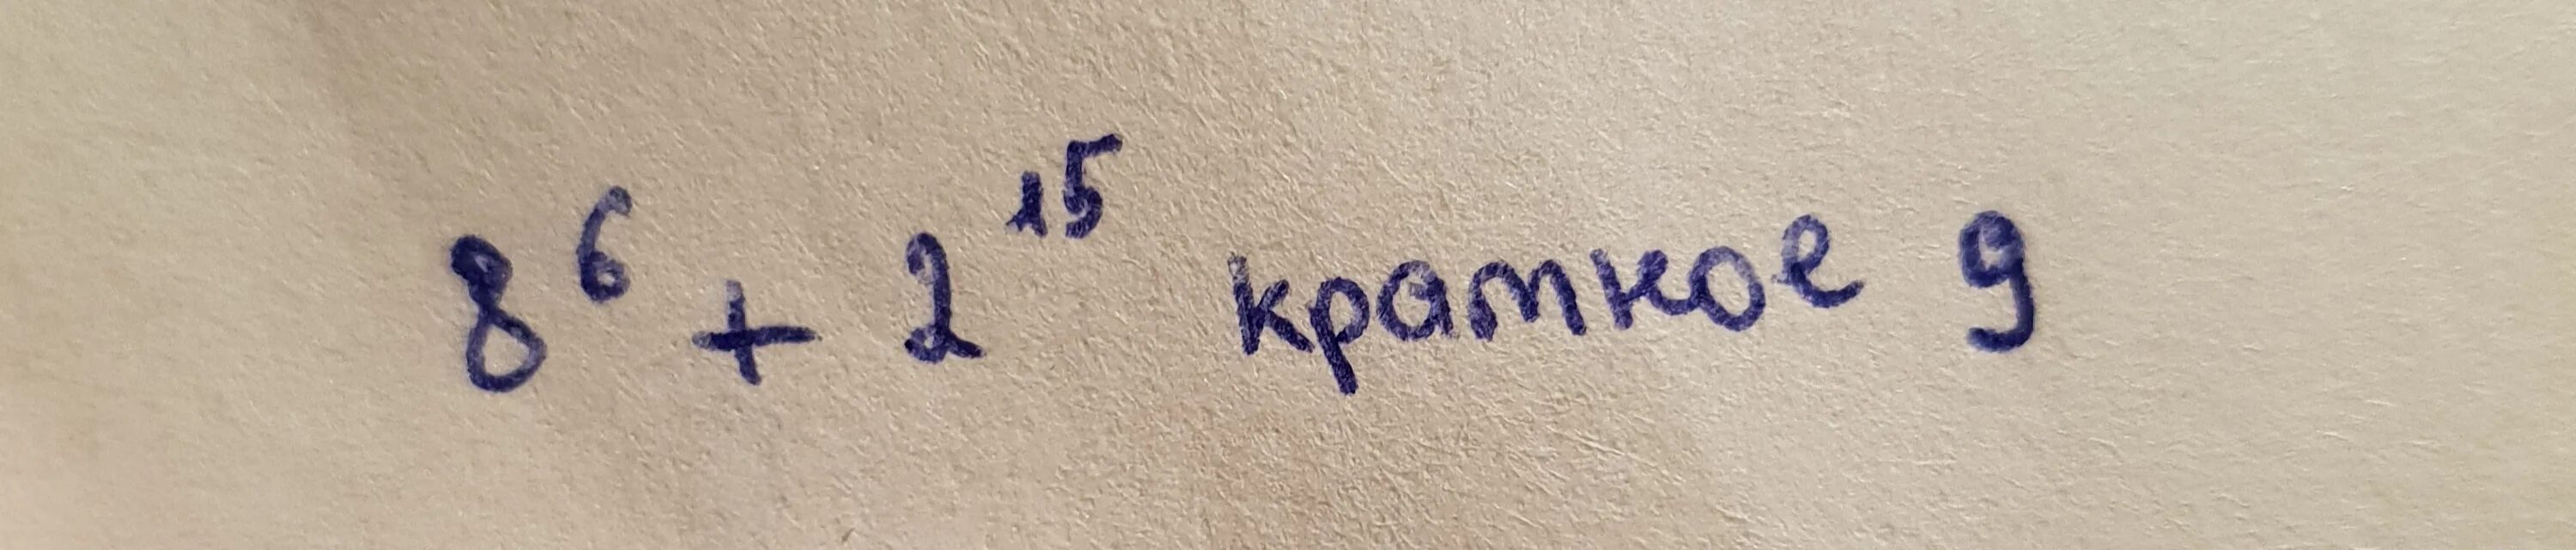 8⁶ + 2¹⁵ кратное 9